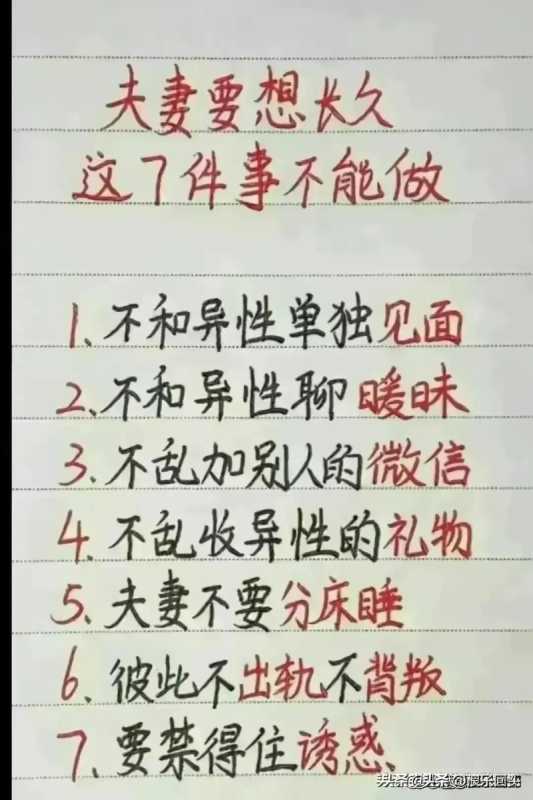 夫妻要想长久
这7件事不能做
1、不和异性单独见面
2、不和异性聊暖昧
3、不乱加别人的微信
4、不乱收异性的礼物
5、夫妻不要分床睡
6、彼此不出轨不背叛
7、要禁得住诱惑
头条@头条